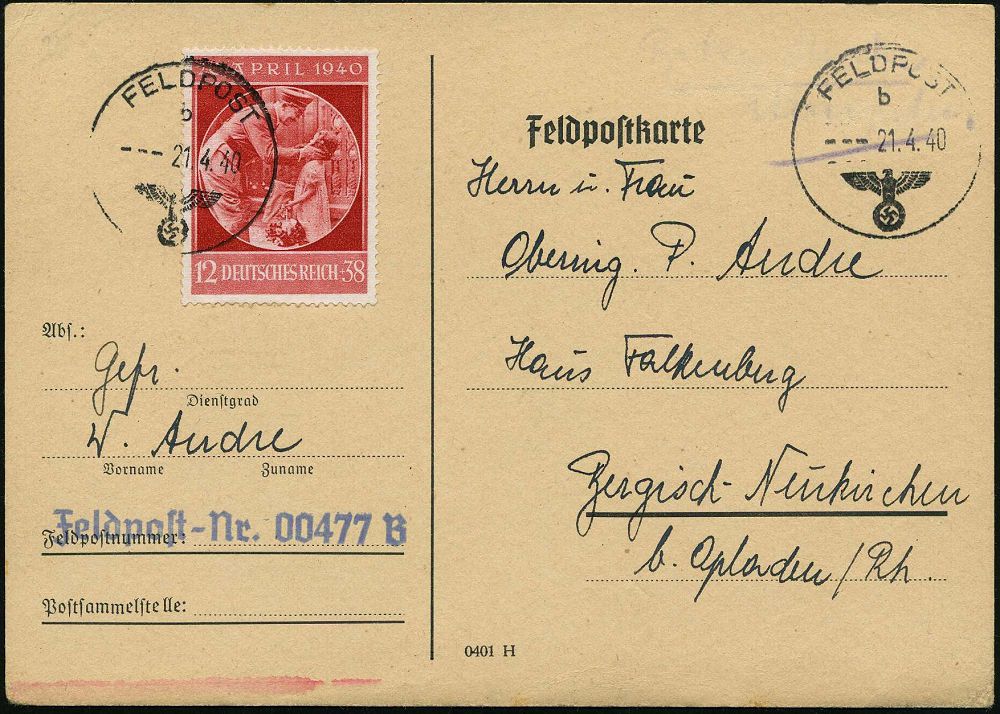 APRIL 1940
FELDPOST
b
--- 21.4.40
12 DEUTSCHES REICH + 38
Abs.:
Gefr.
Dienstgrad
W. Andre
Vorname Zuname
Feldpost-Nr. 00477 B
Feldpostnummer:
Postsammelstelle:
FELDPOST
b
--- 21.4.40
Feldpostkarte
Herrn u. Frau
Obering. P. Andre
Haus Falkenberg
Bergisch-Neukirchen
b. Opladen/Rh.
0401 H